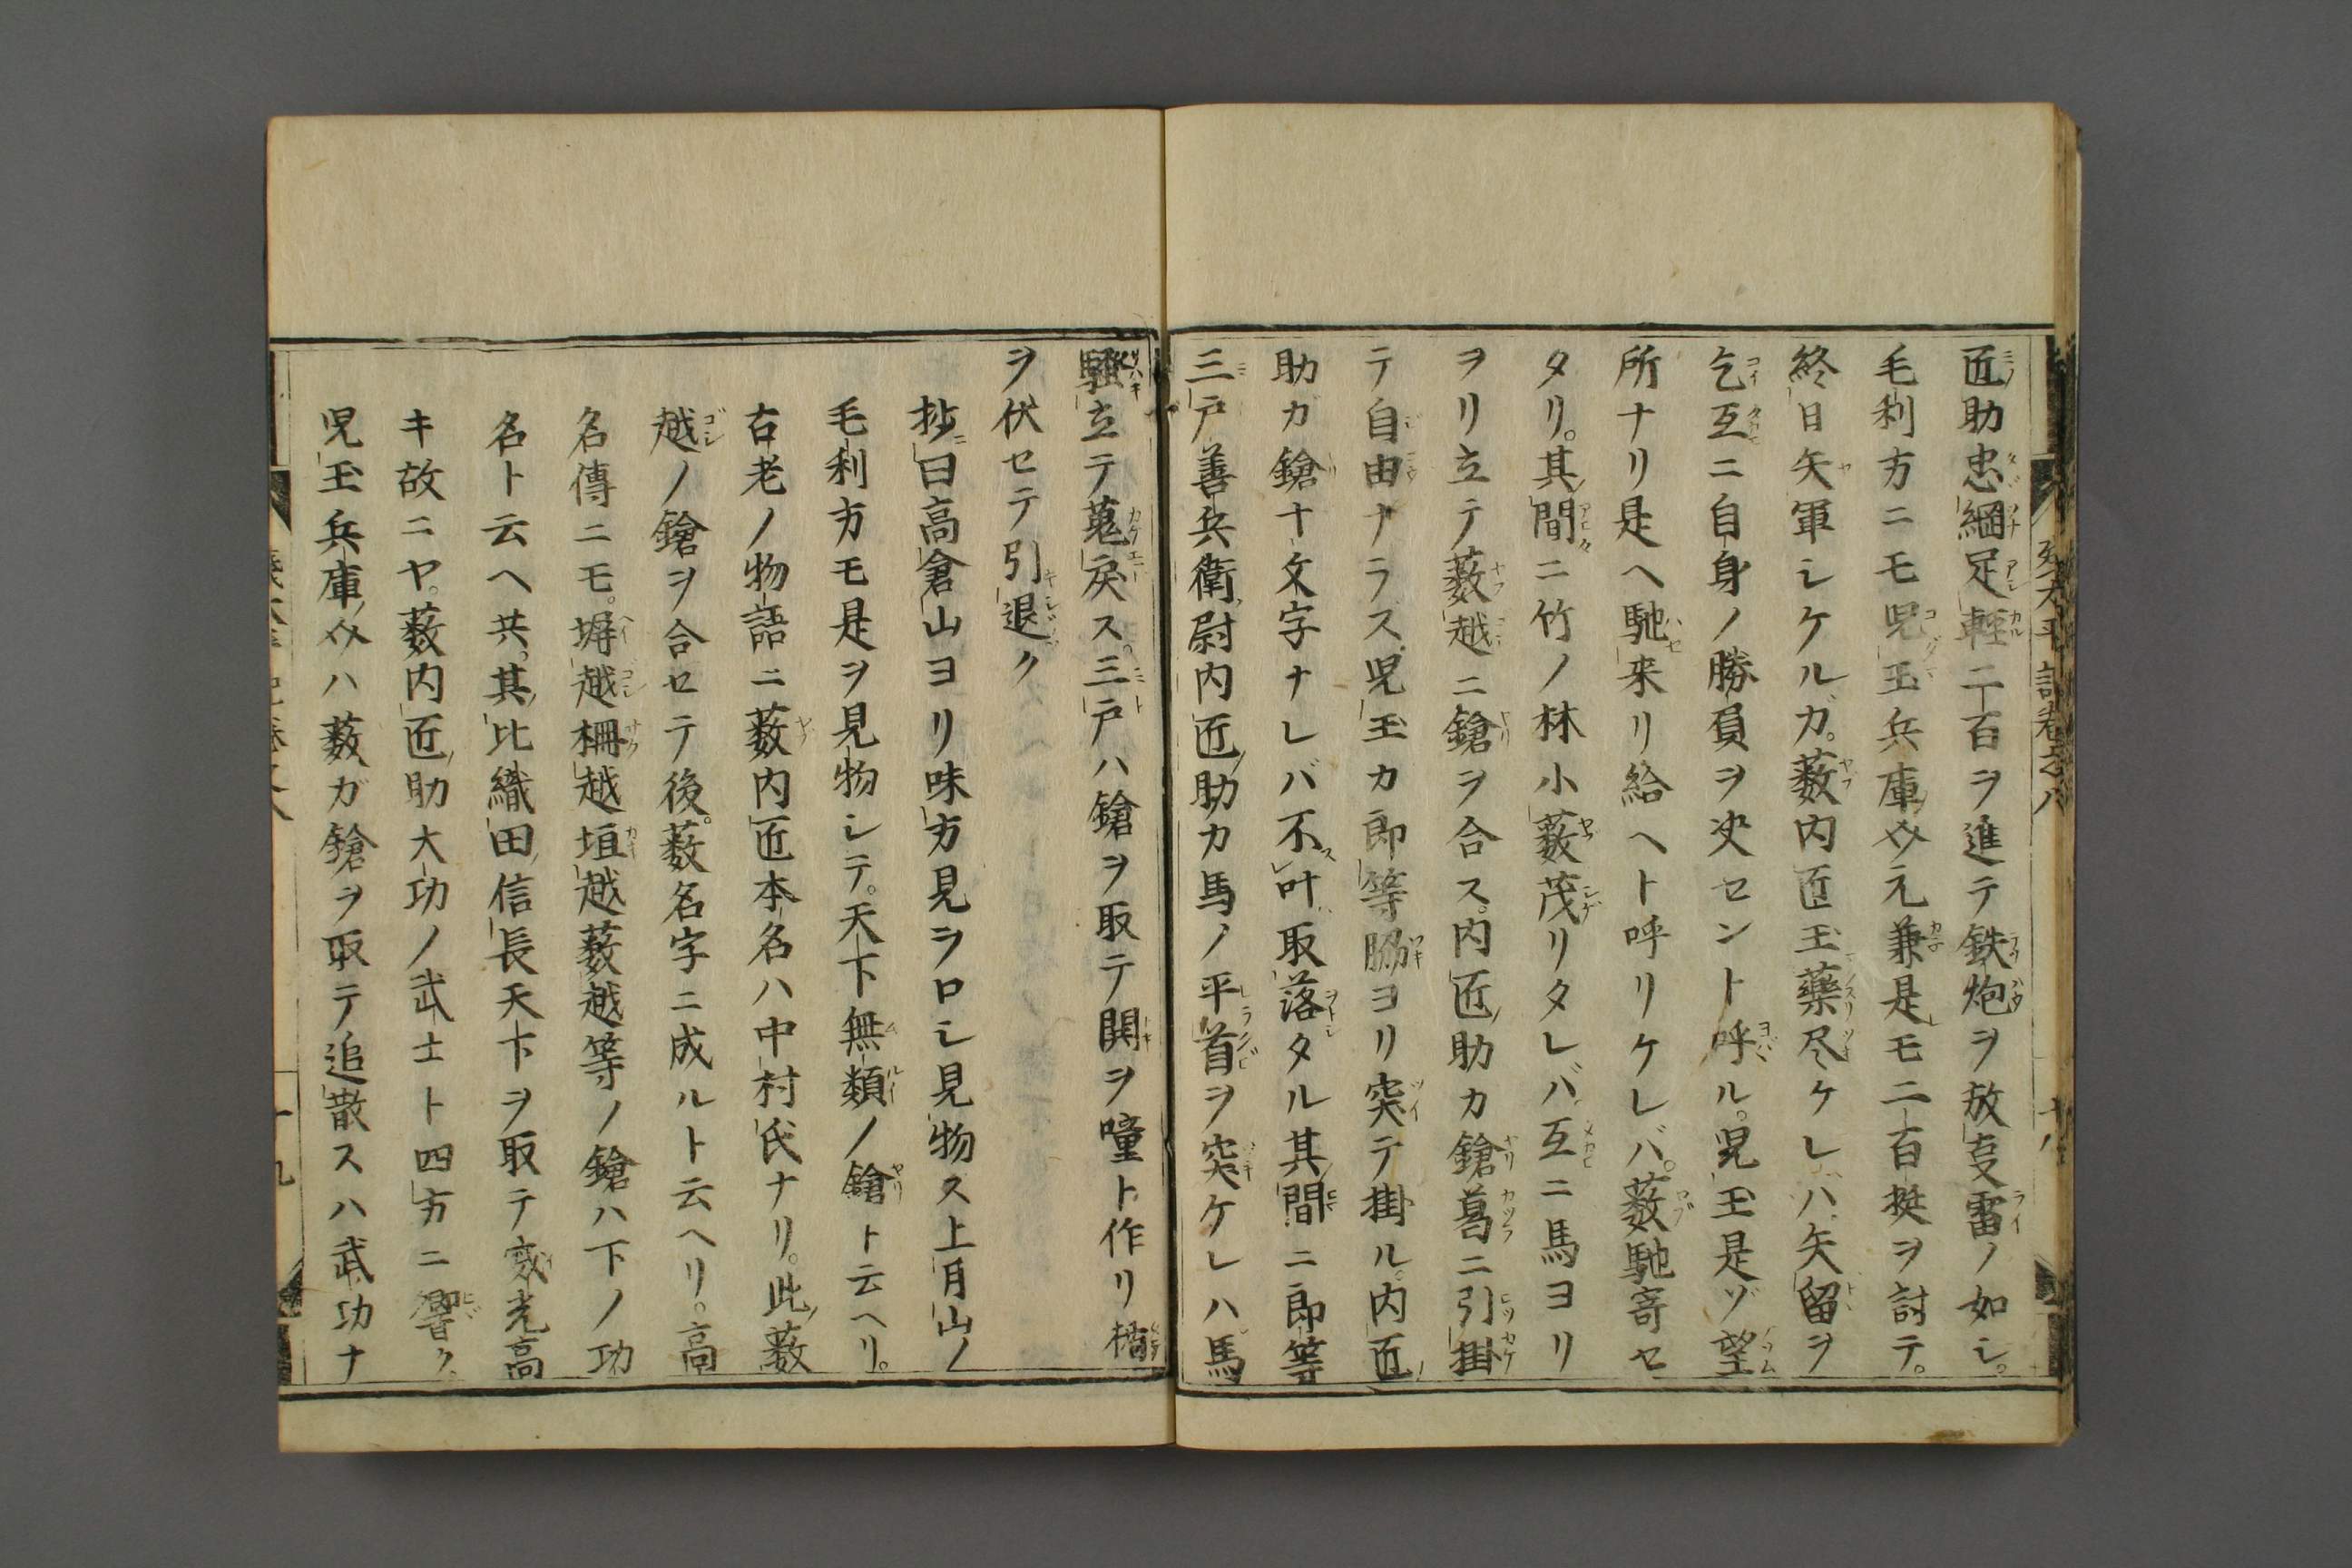 匠助忠綱足輕二百ヲ進テ鉄炮ヲ放夏雷ノ如シ。
毛利方ニモ児玉兵庫㸚元兼是モ二百挺ヲ討テ。
終日矢軍シケルガ。薮内匠玉藥尽ケレハ矢留ヲ
乞互ニ自身ノ勝負ヲ决セント呼ル。児玉是ゾ望
所ナリ是ヘ馳来リ給ヘト呼リケレバ。薮馳寄セ
タリ。其間ニ竹ノ林小薮茂リタレバ互ニ馬ヨリ
ヲリ立テ薮越ニ鎗ヲ合ス。内匠助カ鎗葛ニ引掛
テ自由ナラス。児玉カ郎等脇ヨリ突テ掛ル。内匠
助ガ鎗十文字ナレバ不叶取落タル其間ニ郎等
三戸善兵衛尉内匠助カ馬ノ平首ヲ突ケレハ馬
騒立テ蒐戻ス。三戸ハ鎗ヲ取テ鬨ヲ噇ト作リ楯
ヲ伏セテ引退ク
抄曰高倉山ヨリ味方見ヲロシ見物ス上月山ノ
毛利方モ是ヲ見物シテ。天下無類ノ鎗ト云ヘリ。
古老ノ物語ニ薮内匠本名ハ中村氏ナリ。此薮
越ノ鎗ヲ合セテ後。薮名字ニ成ルト云ヘリ。高
名傳ニモ。塀越柵越垣越薮越等ノ鎗ハ下ノ功
名ト云ヘ共。其比織田信長天下ヲ取テ威光高
キ故ニヤ。薮内匠助大功ノ武士ト四方ニ響ク。
児玉兵庫㸚ハ薮ガ鎗ヲ取テ追散スハ武功ナ
十九